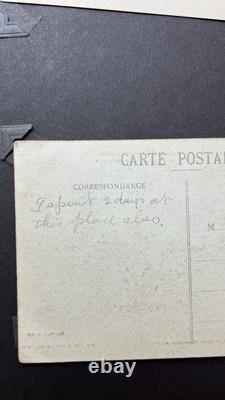 CARTE POSTA
CORRESPONDANCE
I spent 2 days at
this place also.
M
ebay